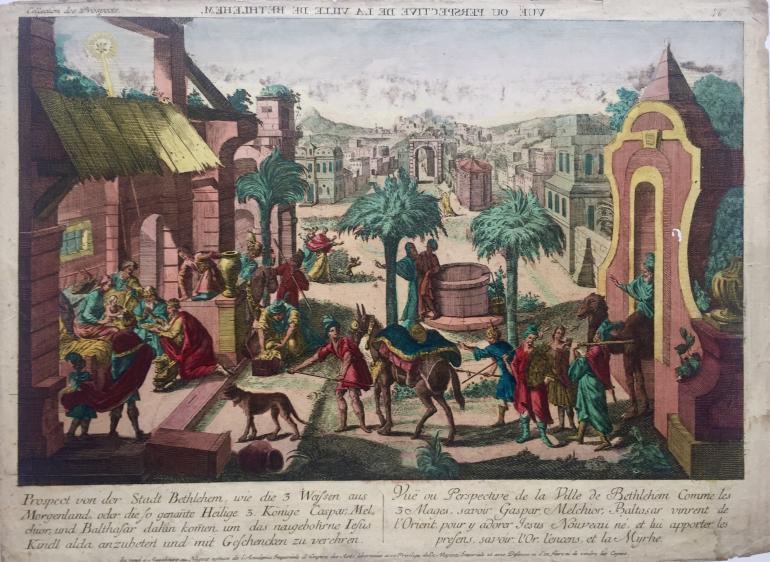 Collection des Prospects.
VUË OU PERSPECTIVE DE LA VILLE DE BETHLEHEM.
Prospect von der Stadt Bethlehem, wie die 3 Weissen aus
Morgenland, oder die so genañte Heilige 3. Könige Caspar, Mel,
chior, und Balthasar dahin komen, um das neügebohrne Jesüs
Kindl alda anzubeten und mit Geschencken zu verehren.
Vuë ou Perspective de la Ville de Bethlehem Comme les
3 Mages, savoir Gaspar, Melchior, Baltasar vinrent de
l'Orient pour y adorer Jesus Nouveau né, et lui apporter les
presens, savoir l'Or, l'encens, et la Myrhe.